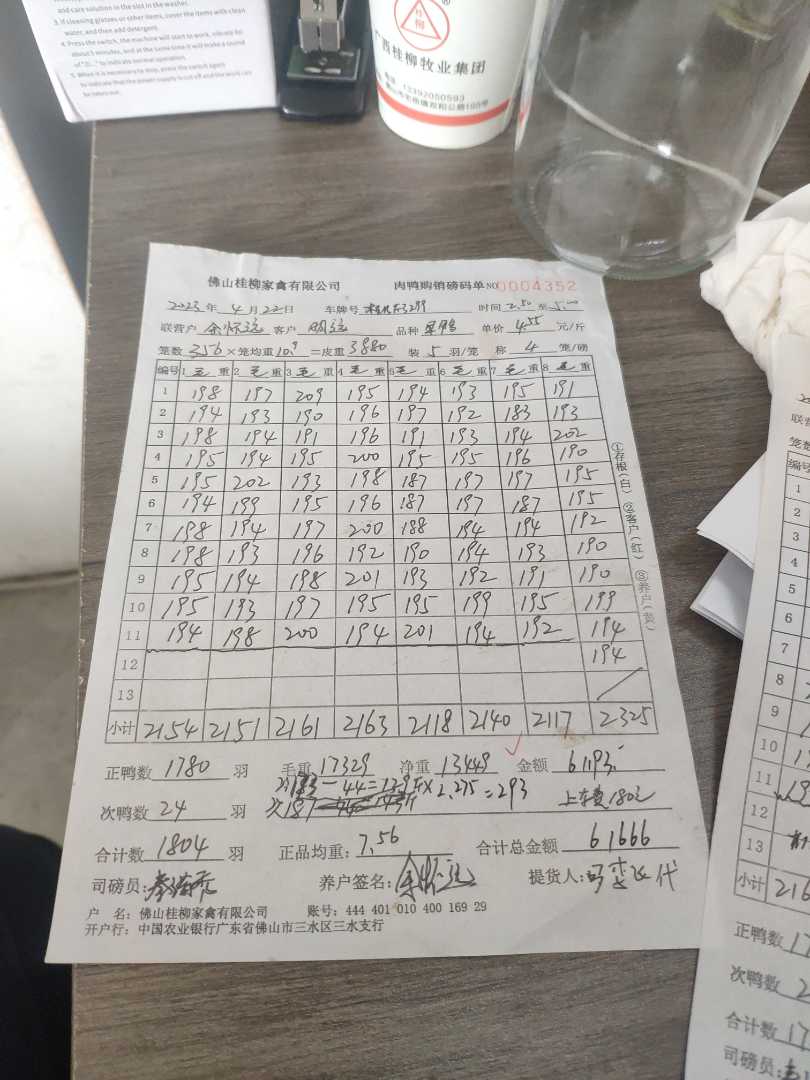 and care solution in the slot in the washer.
3. If cleaning glasses or other items, cover the items with clean
water, and then add detergent.
4. Press the switch, the machine will start to work, vibrate for
about 5 minutes, and at the same time it will make a sound
to indicate normal operation.
5. When it is necessary to stop, press the switch again
to indicate that the power supply is cut off and the work can
®
广西桂柳牧业集团
佛山桂柳家禽有限公司 肉鸭购销磅码单 NO 0004352
2023 年 4 月 22 日 车牌号 时间 2.50 至 5.00
联营户 余怀远 客户 明远 品种 单价 4.55 元/斤
笼数 356 ×笼均重 10.9 =皮重 3880 装 5 羽/笼 称 4 笼/磅
编号 1 毛 重 2 毛 重 3 毛 重 4 毛 重 5 毛 重 6 毛 重 7 毛 重 8 毛 重
1 198 197 209 195 194 193 195 191
2 194 193 190 196 197 192 183 193
3 198 194 191 196 191 193 194 202
4 195 194 195 200 195 195 196 190
5 195 202 193 198 187 197 197 195
6 194 199 195 196 187 197 187 195
7 198 194 197 200 188 194 194 192
8 198 193 196 192 190 194 193 190
9 195 194 198 201 193 192 191 190
10 195 193 197 195 195 199 195 199
11 194 198 200 194 201 194 192 194
12 194
13
小计 2154 2151 2161 2163 2118 2140 2117 2325
①存根(白) ②客户(红) ③养户(黄)
正鸭数 1780 羽 毛重 17329 净重 13449 金额 61193
次鸭数 24 羽 183-44=139斤×2.275=293 上车费180元
合计数 1804 羽 正品均重: 7.56 合计总金额 61666
司磅员: 养户签名: 余怀远 提货人: 代
户 名: 佛山桂柳家禽有限公司 账号: 444 401 010 400 169 29
开户行: 中国农业银行广东省佛山市三水区三水支行
联营
笼数
编号
1
2
3
4
5
6
7
8
9
10
11
12
13
小计 216
正鸭数
次鸭数 2
合计数
司磅员: